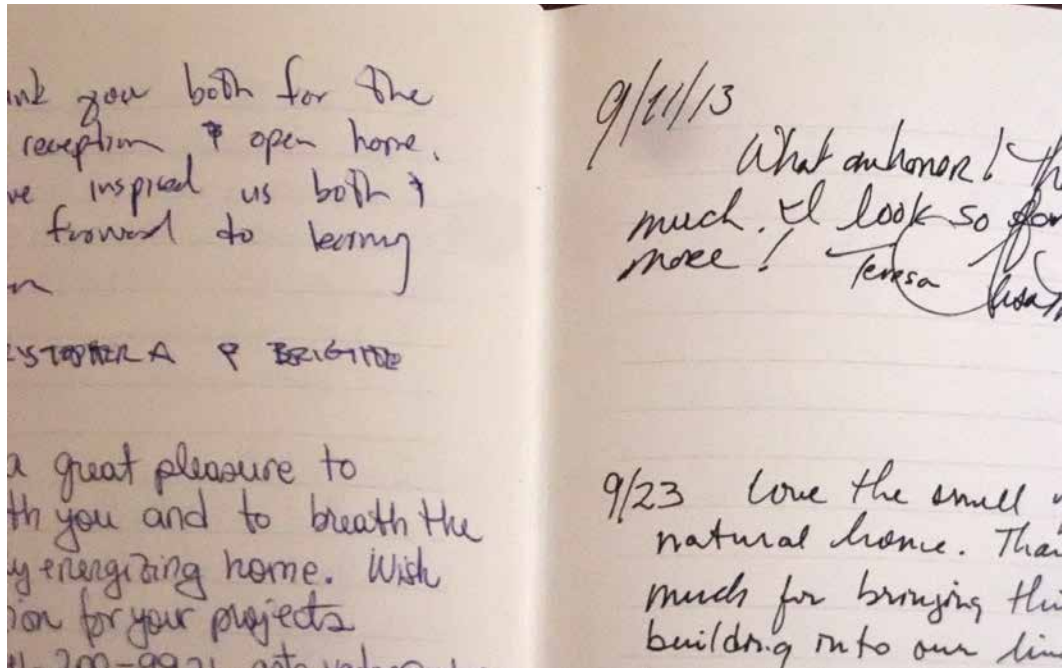 ink you both for the
reception & open home.
ve inspired us both &
forward to learning
n
ISTOPHER A & BRIGITTE
a great pleasure to
th you and to breath the
y energizing home. Wish
ion for your projects
200-9921
9/11/13
What an honor! Th
much. I look so for
more! Teresa
9/23 Love the smell
natural home. Than
much for bringing thi
building into our